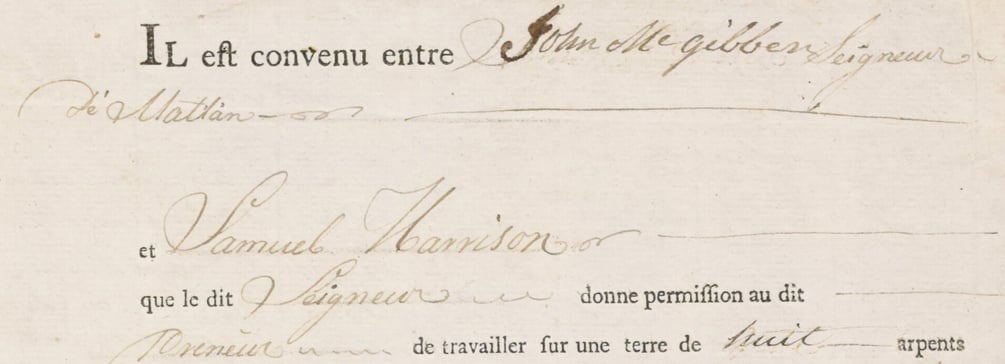 IL eſt convenu entre John Mc gibben Seigneur
Dé Mattàn
et Samuel Harrison
que le dit Seigneur donne permiſſion au dit
Prenéur de travailler ſur une terre de huit arpents